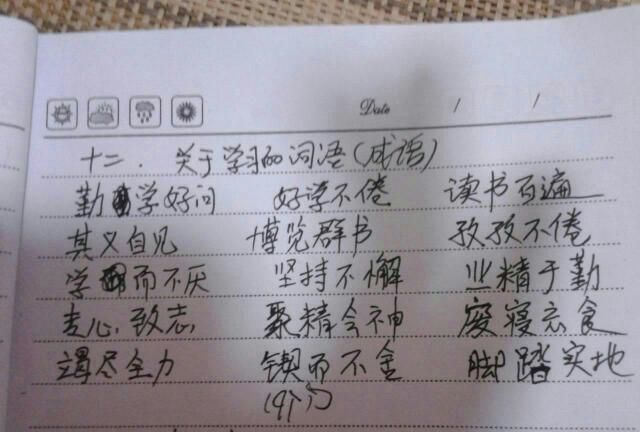 Date / /
十二.关于学习的词语(成语)
勤学好问 好学不倦 读书百遍
其义自见 博览群书 孜孜不倦
学而不厌 坚持不懈 业精于勤
专心致志 聚精会神 废寝忘食
竭尽全力 锲而不舍 脚踏实地